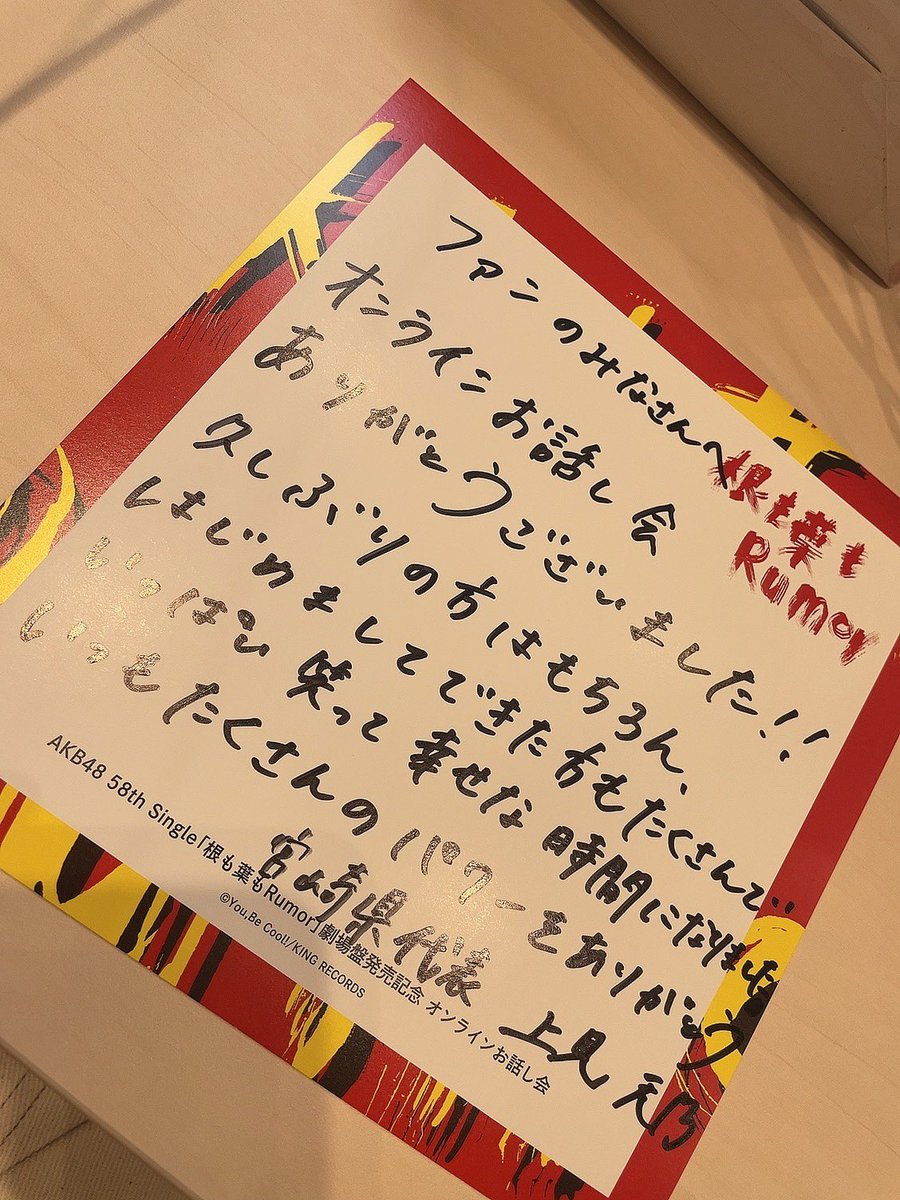 ファンのみなさんへ
根も葉も
Rumor
オンラインお話し会
ありがとうございました!!
久しぶりの方はもちろん、
はじめましてできた方もたくさんで‥
いっぱい笑って幸せな時間になりました
いつもたくさんのパワーをありがとう
宮崎県代表 上見天乃
AKB48 58th Single「根も葉もRumor」劇場盤発売記念 オンラインお話し会
©You,Be Cool!/KING RECORDS